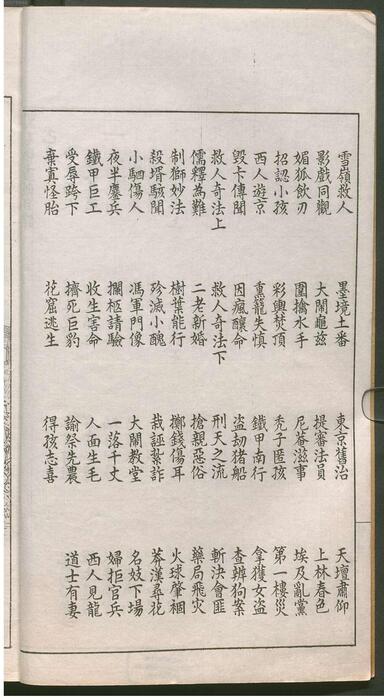 雪嶺救人　墨境土番　東京舊治　天壇肅仰
影戲同觀　大鬧龜茲　提審法員　上林春色
媚狐飲刃　圍擒水手　尼菴滋事　埃及亂黨
招認小孩　彩輿焚頂　禿子匿孩　第一樓災
西人遊京　熏籠失慎　鐵甲南行　拿獲女盜
毀卡傳聞　因瘋釀命　盜劫猪船　查辦狗案
救人奇法上　救人奇法下　刑天之流　斬決會匪
儒釋為難　二老新婚　搶親惡俗　藥局飛灾
制獅妙法　樹葉能行　擲錢傷耳　火球肇禍
殺壻駭聞　殄滅小醜　栽誣紮詐　莽漢尋花
小駟傷人　馮軍門像　大鬧教堂　名妓下場
夜半鏖兵　攔柩請驗　一落千丈　婦拒官兵
鐵甲巨工　收生害命　人面生毛　西人見龍
受辱跨下　擠死巨豹　諭祭先農　道士有妻
棄寘怪胎　花窟逃生　得孩志喜